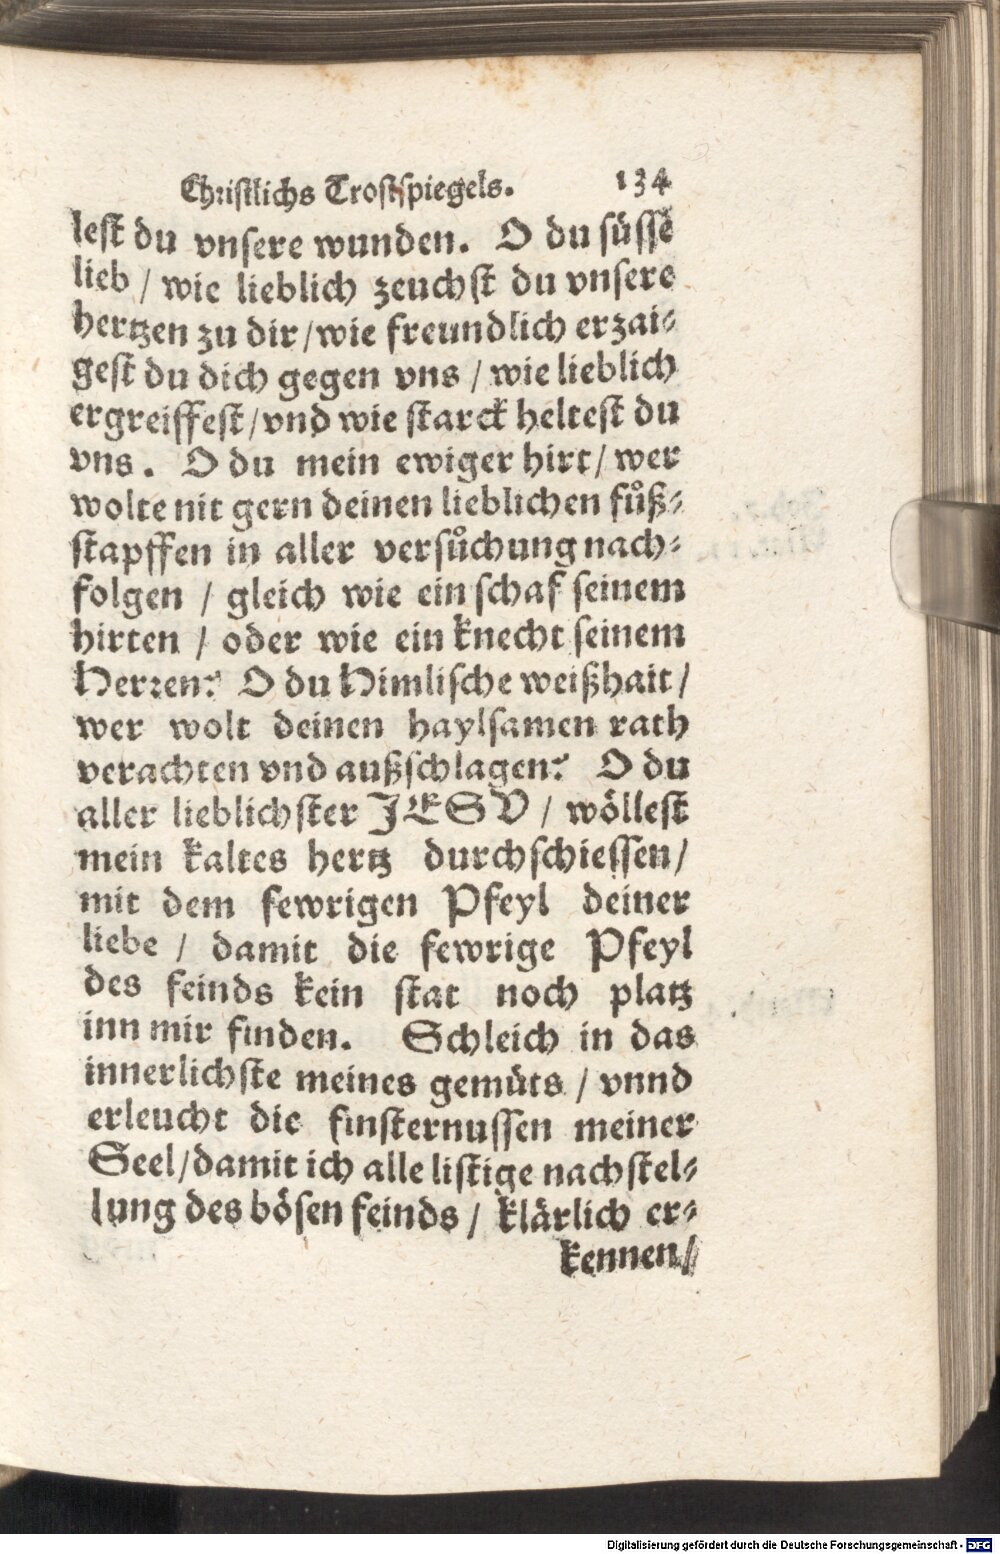 Christlichs Trostspiegels. 134
lest du vnsere wunden. O du süsse
lieb / wie lieblich zeuchst du vnsere
hertzen zu dir / wie freundlich erzai-
gest du dich gegen vns / wie lieblich
ergreiffest / vnd wie starck heltest du
vns. O du mein ewiger hirt / wer
wolte nit gern deinen lieblichen fůß-
stapffen in aller versůchung nach-
folgen / gleich wie ein schaf seinem
hirten / oder wie ein knecht seinem
Herren? O du Himlische weißhait /
wer wolt deinen haylsamen rath
verachten vnd außschlagen? O du
aller lieblichster JESV / wöllest
mein kaltes hertz durchschiessen /
mit dem fewrigen Pfeyl deiner
liebe / damit die fewrige Pfeyl
des feinds kein stat noch platz
inn mir finden. Schleich in das
innerlichste meines gemüts / vnnd
erleucht die finsternussen meiner
Seel / damit ich alle listige nachstel-
lung des bösen feinds / klärlich er-
kennen /
Digitalisierung gefördert durch die Deutsche Forschungsgemeinschaft - DFG